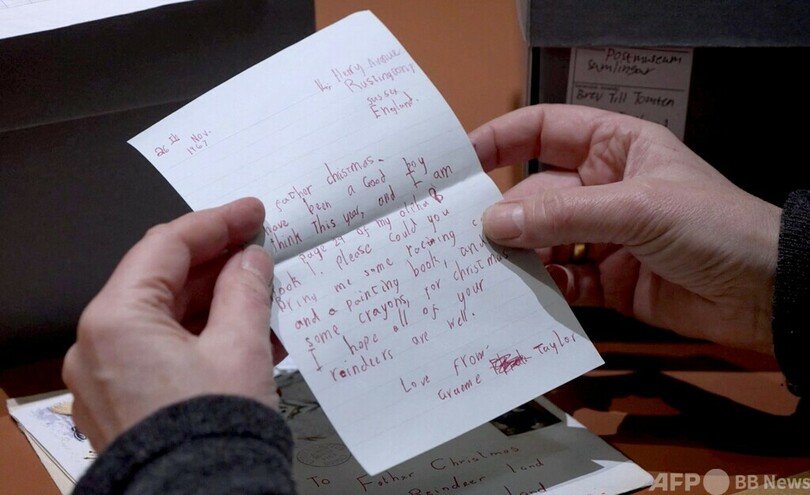 Rustington
Sussex
England.
26th Nov.
1967
father christmas.
Have been a Good boy
think this year, and I am
page 29 of my alfha B
book 1. please could you
bring me some racing
and a painting book, and
some crayons, for christmas
I hope all of your
reindeers are well.
Love from
Graeme Taylor
Postmuseum
samlingar
Brev Till Tomten
To Father Christmas
Reindeer land
AFP BB News